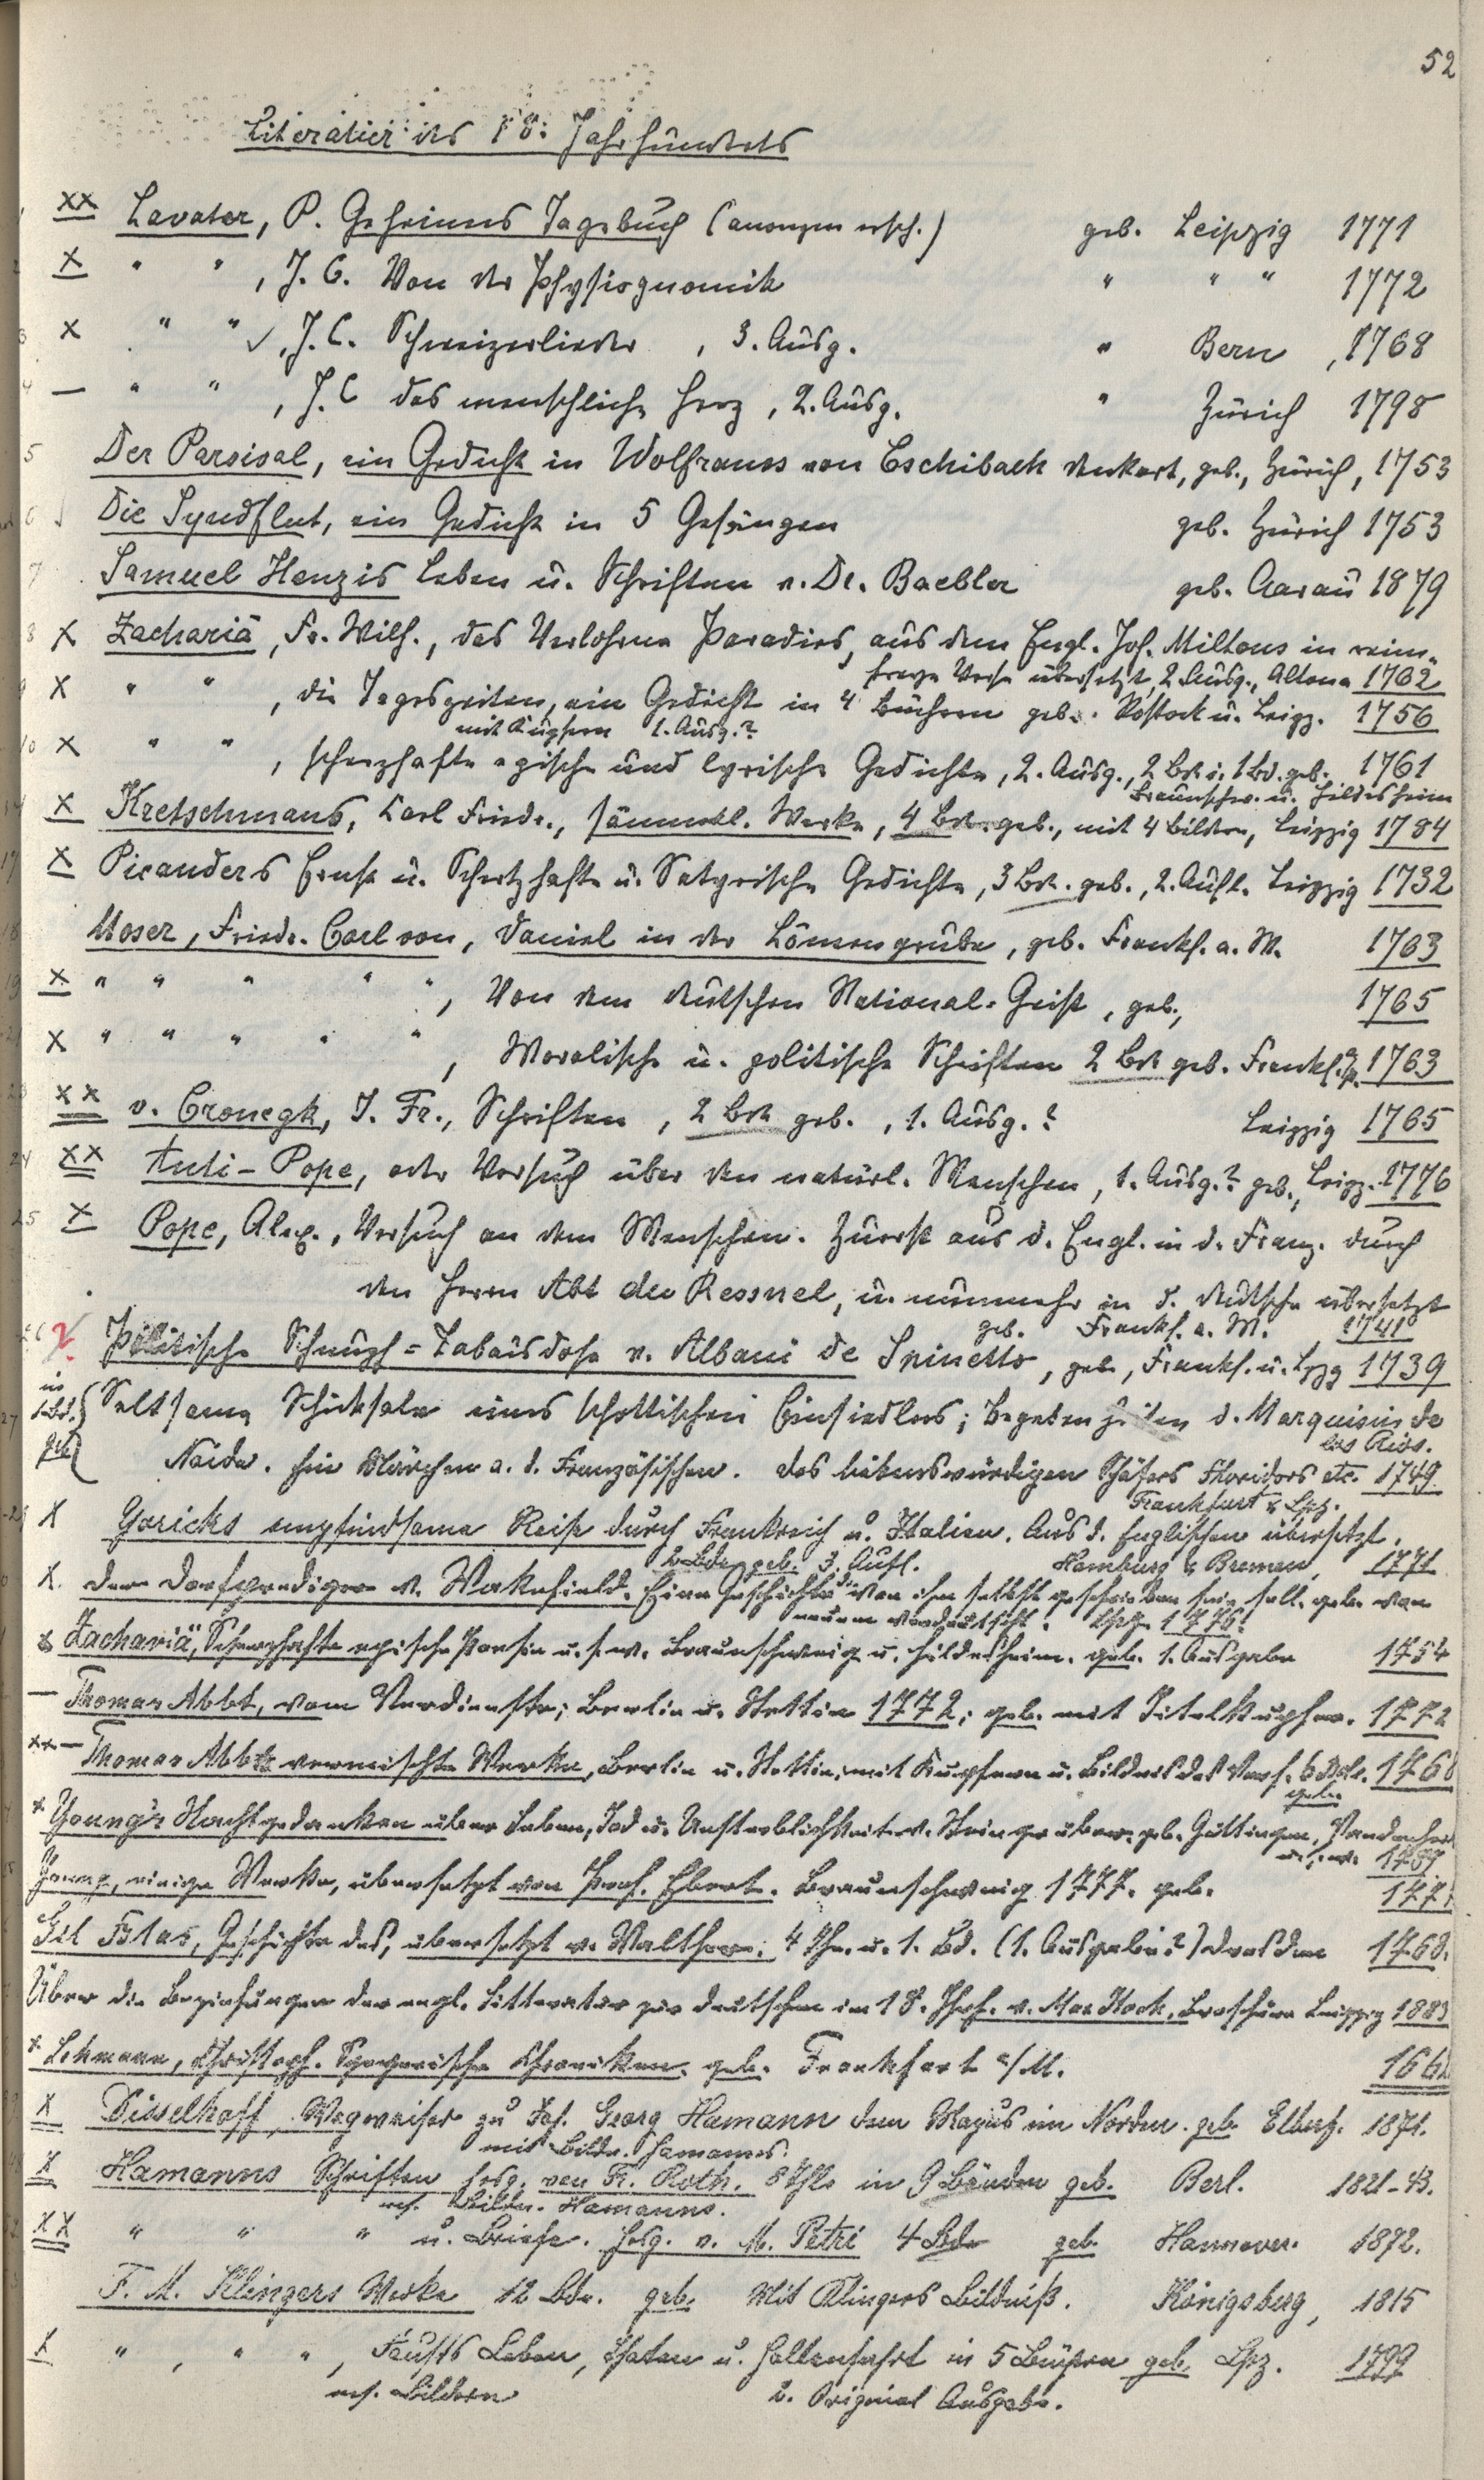 52
Literatur des 18. Jahrhunderts
1 XX Lavater, P. Geheimes Tagebuch (anonym ersch.) geb. Leipzig 1771
2 X " " , J. C. Von der Physiognomik " " " 1772
3 X " " ✓, J. C. Schweizerlieder , 3. Ausg. " Bern , 1768
4 — " " , J. C das menschliche Herz , 2. Ausg. " Zürich 1798
5 Der Parsival, ein Gedicht in Wolframs von Eschibach denkart, geb., Zürich, 1753
6 Die Syndflut, ein Gedicht in 5 Gesängen geb. Zürich 1753
7 Samuel Henzis Leben u. Schriften v. Dr. Baebler geb. Aarau 1879
8 X Zachariä, Fr. Wilh., das Verlohrne Paradies, aus dem Engl. Joh. Miltons in reim-
freye Verse übersetzt, 2. Ausg., Altona 1762
9 X " " , die Tageszeiten, ein Gedicht in 4 Büchern geb. Rostock u. Leipz. 1756
mit Kupfern 1. Ausg.?
10 X " " , scherzhafte epische und lyrische Gedichte, 2. Ausg., 2 Bde i. 1 Bd. geb. 1761
Braunschw. u. Hildesheim
X Kretschmans, Carl Friedr., sämmtl. Werke, 4 Bde. geb., mit 4 Bildern, Leipzig 1784
17 X Picanders Ernst u. Schertzhafte u. Satyrische Gedichte, 3 Bde. geb., 2. Aufl. Leipzig 1732
18 Moser, Friedr. Carl von, Daniel in der Löwengrube, geb. Frankf. a. M. 1763
19 X " " " " " , Von dem deutschen National-Geist, geb., 1765
21 X " " " " " , Moralische u. politische Schriften 2 Bde geb. Frankf. a/M. 1763
23 XX v. Cronegk, J. Fr., Schriften, 2 Bde geb. , 1. Ausg.? Leipzig 1765
24 XX Anti-Pope, oder Versuch über den natürl. Menschen, 1. Ausg.? geb., Leipz. 1776
25 X Pope, Alex., Versuch an dem Menschen. Zuerst aus d. Engl. in d. Franz. durch
den Herrn Abt du Ressnel, u. nunmehr in d. deutsche übersetzt
geb. Frankf. a. M. 1741
26 Politische Schnupf-Tabaksdose v. Albani de Spinetto, geb., Frankf. u. Lpzg 1739
27 in 1 Bd. geb. { Seltsame Schicksale eines schottischen Einsiedlers; Begebenheiten d. Marquisin de
los Rios.
Naide. Ein Märchen a. d. Französischen. Des liebenswürdigen Schäfers Floridors etc. 1749.
Frankfurt & Lpz.
X Yoricks empfindsame Reise durch Frankreich u. Italien. Aus d. Englischen übersetzt,
2 Bde geb. 3. Aufl. Hamburg & Bremen, 1771
X. Der Dorfprediger v. Wakefield. Eine Geschichte die von ihm selbst geschrieben sein soll. geb. von
neuem verdeutscht. Lpzg. 1776.
x Zachariä, Scherzhafte epische Poesien u.s.w. Braunschweig u. Hildesheim. geb. 1. Ausgabe 1754
— Thomas Abbt, vom Verdienste; Berlin u. Stettin 1772; geb. mit Titelkupfer. 1772
xx — Thomas Abbts vermischte Werke, Berlin u. Stettin, mit Kupfern u. Bildnis des Verf. 6 Bde. 1768
geb.
x Young's Nachtgedanken über Leben, Tod u. Unsterblichkeit geb. Göttingen,
1769
Young, einige Werke, übersetzt von Prof. Ebert. Braunschweig 1777. geb. 1777
Gil Blas, Geschichte des, übersetzt v. Walthern; 4 Thr. u. 1. Bd. (1. Ausgabe?) Dresden 1768.
Über die Beziehungen der engl. Litteratur zur deutschen im 18. Jhrh. v. Max Koch, Broschüre Leipzig 1883
x Lehmann, Christoph. Speyerische Chroniken. geb. Frankfurt a/M. 1662
X Disselhoff, Wegweiser zu Joh. Georg Hamann dem Magus im Norden. geb. Elberf. 1871.
mit Bildn. Hamanns.
X Hamanns Schriften hrsg. von Fr. Roth. 8 Thle in 9 Bänden geb. Berl. 1821-43.
m. Bildn. Hamanns.
XX " " " u. Briefe. hrsg. v. M. Petri 4 Bde geb. Hannover. 1872.
F. M. Klingers Werke 12 Bde. geb. Mit Klingers Bildniß. Königsberg, 1815
X " , " " , Fausts Leben, Thaten u. Höllenfahrt in 5 Büchern geb. Lpz. 1799
m. Bildern 2. Original Ausgabe.